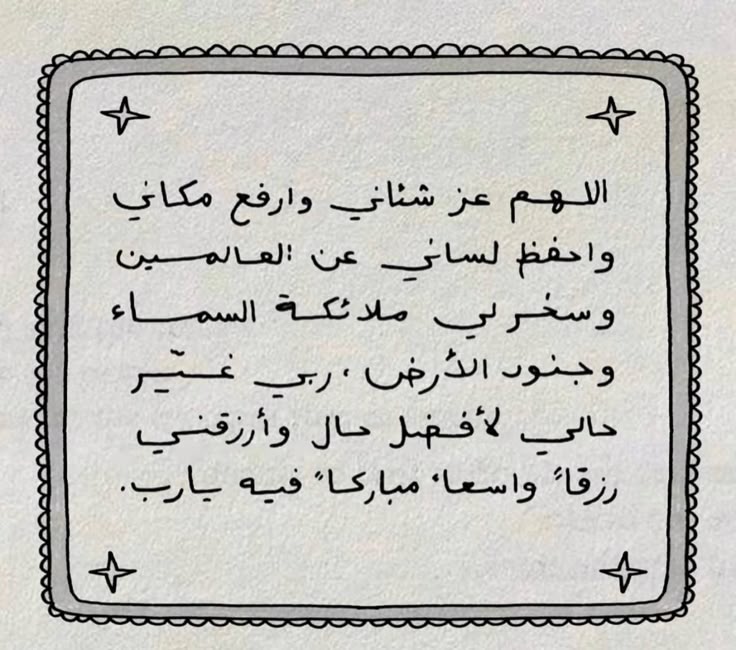 اللهم عز شئاني وارفع مكاني
واحفظ لساني عن العالمين
وسخر لي ملائكة السماء
وجنود الأرض ، ربي غيّر
حالي لأفضل حال وأرزقني
رزقاً واسعاً مباركاً فيه يارب.